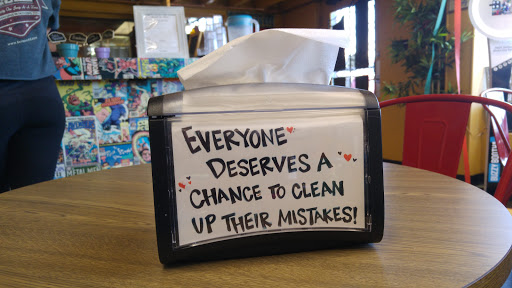 EVERYONE
DESERVES A
CHANCE TO CLEAN
UP THEIR MISTAKES!